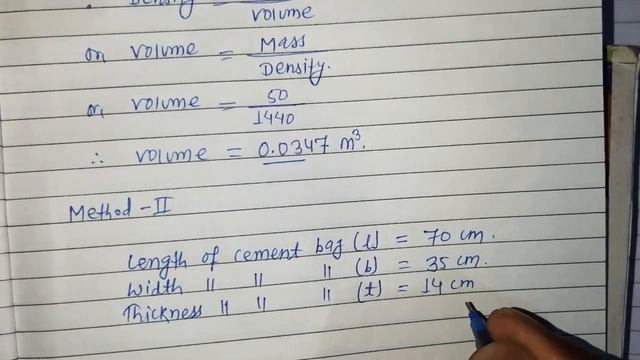 Density =
volume
or volume = Mass
Density.
or, volume = 50
1440
∴ volume = 0.0347 m³.
Method - II
Length of cement bag (l) = 70 cm.
Width " " " (b) = 35 cm.
Thickness " " " (t) = 14 cm